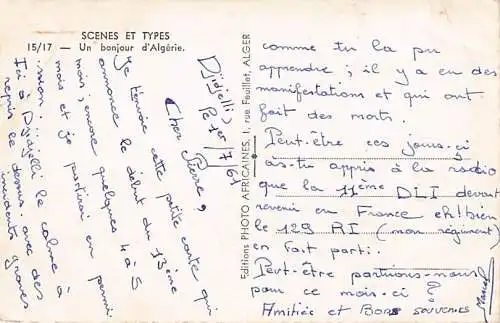 SCENES ET TYPES
15/17 — Un bonjour d'Algérie.
Djidjelli,
1/7/61
Cher Pierre,
Je t'envoie cette petite carte qui
annonce le début du 13ème
mois; encore quelques 4 à 5
mois et je partirai en permi
ssion
Ici à Djidjelli le calme à
repris le dessus avec des
incidents graves
Editions PHOTO AFRICAINES, 1, rue Feuillet, ALGER
comme tu la pu
apprendre; il y a en des
manifestations et qui ont
fait des morts.
Peut-être ces jours-ci
as-tu appris à la radio
que la 11ème DLI devait
revenir en France eh! bien
le 129 RI (mon régiment)
en fait parti.
Peut-être partirions-nous
pour ce mois-ci?
Amitiés et Bons SOUVENIRS
Marcel